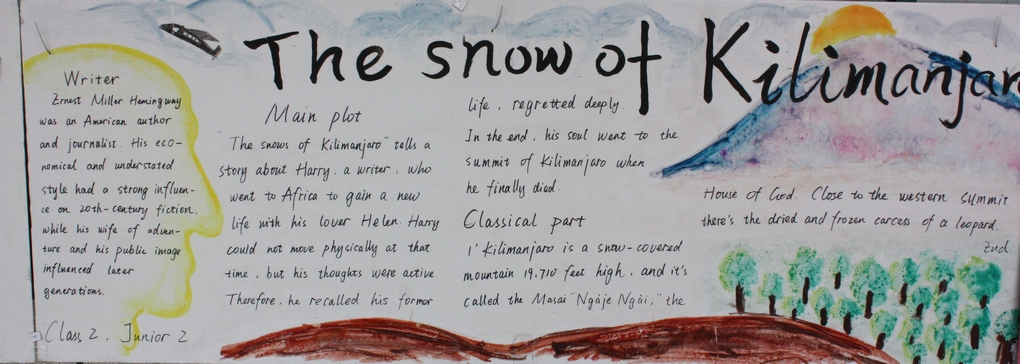 The snow of Kilimanjar
Writer
Ernest Miller Hemingway
was an American author
and journalist. His eco-
nomical and understated
style had a strong influen-
ce on 20th-century fiction,
while his wife of adven-
ture and his public image
influenced later
generations.
Class 2, Junior 2
Main plot
"The snows of Kilimanjaro" tells a
story about Harry, a writer, who
went to Africa to gain a new
life with his lover Helen. Harry
could not move physically at that
time, but his thoughts were active.
Therefore, he recalled his former
life, regretted deeply.
In the end, his soul went to the
summit of Kilimanjaro when
he finally died.
Classical part
1' Kilimanjaro is a snow-covered
mountain 19,710 feet high, and it's
called the Masai "Ngàje Ngài," the
House of God. Close to the western summit
there's the dried and frozen carcass of a leopard.